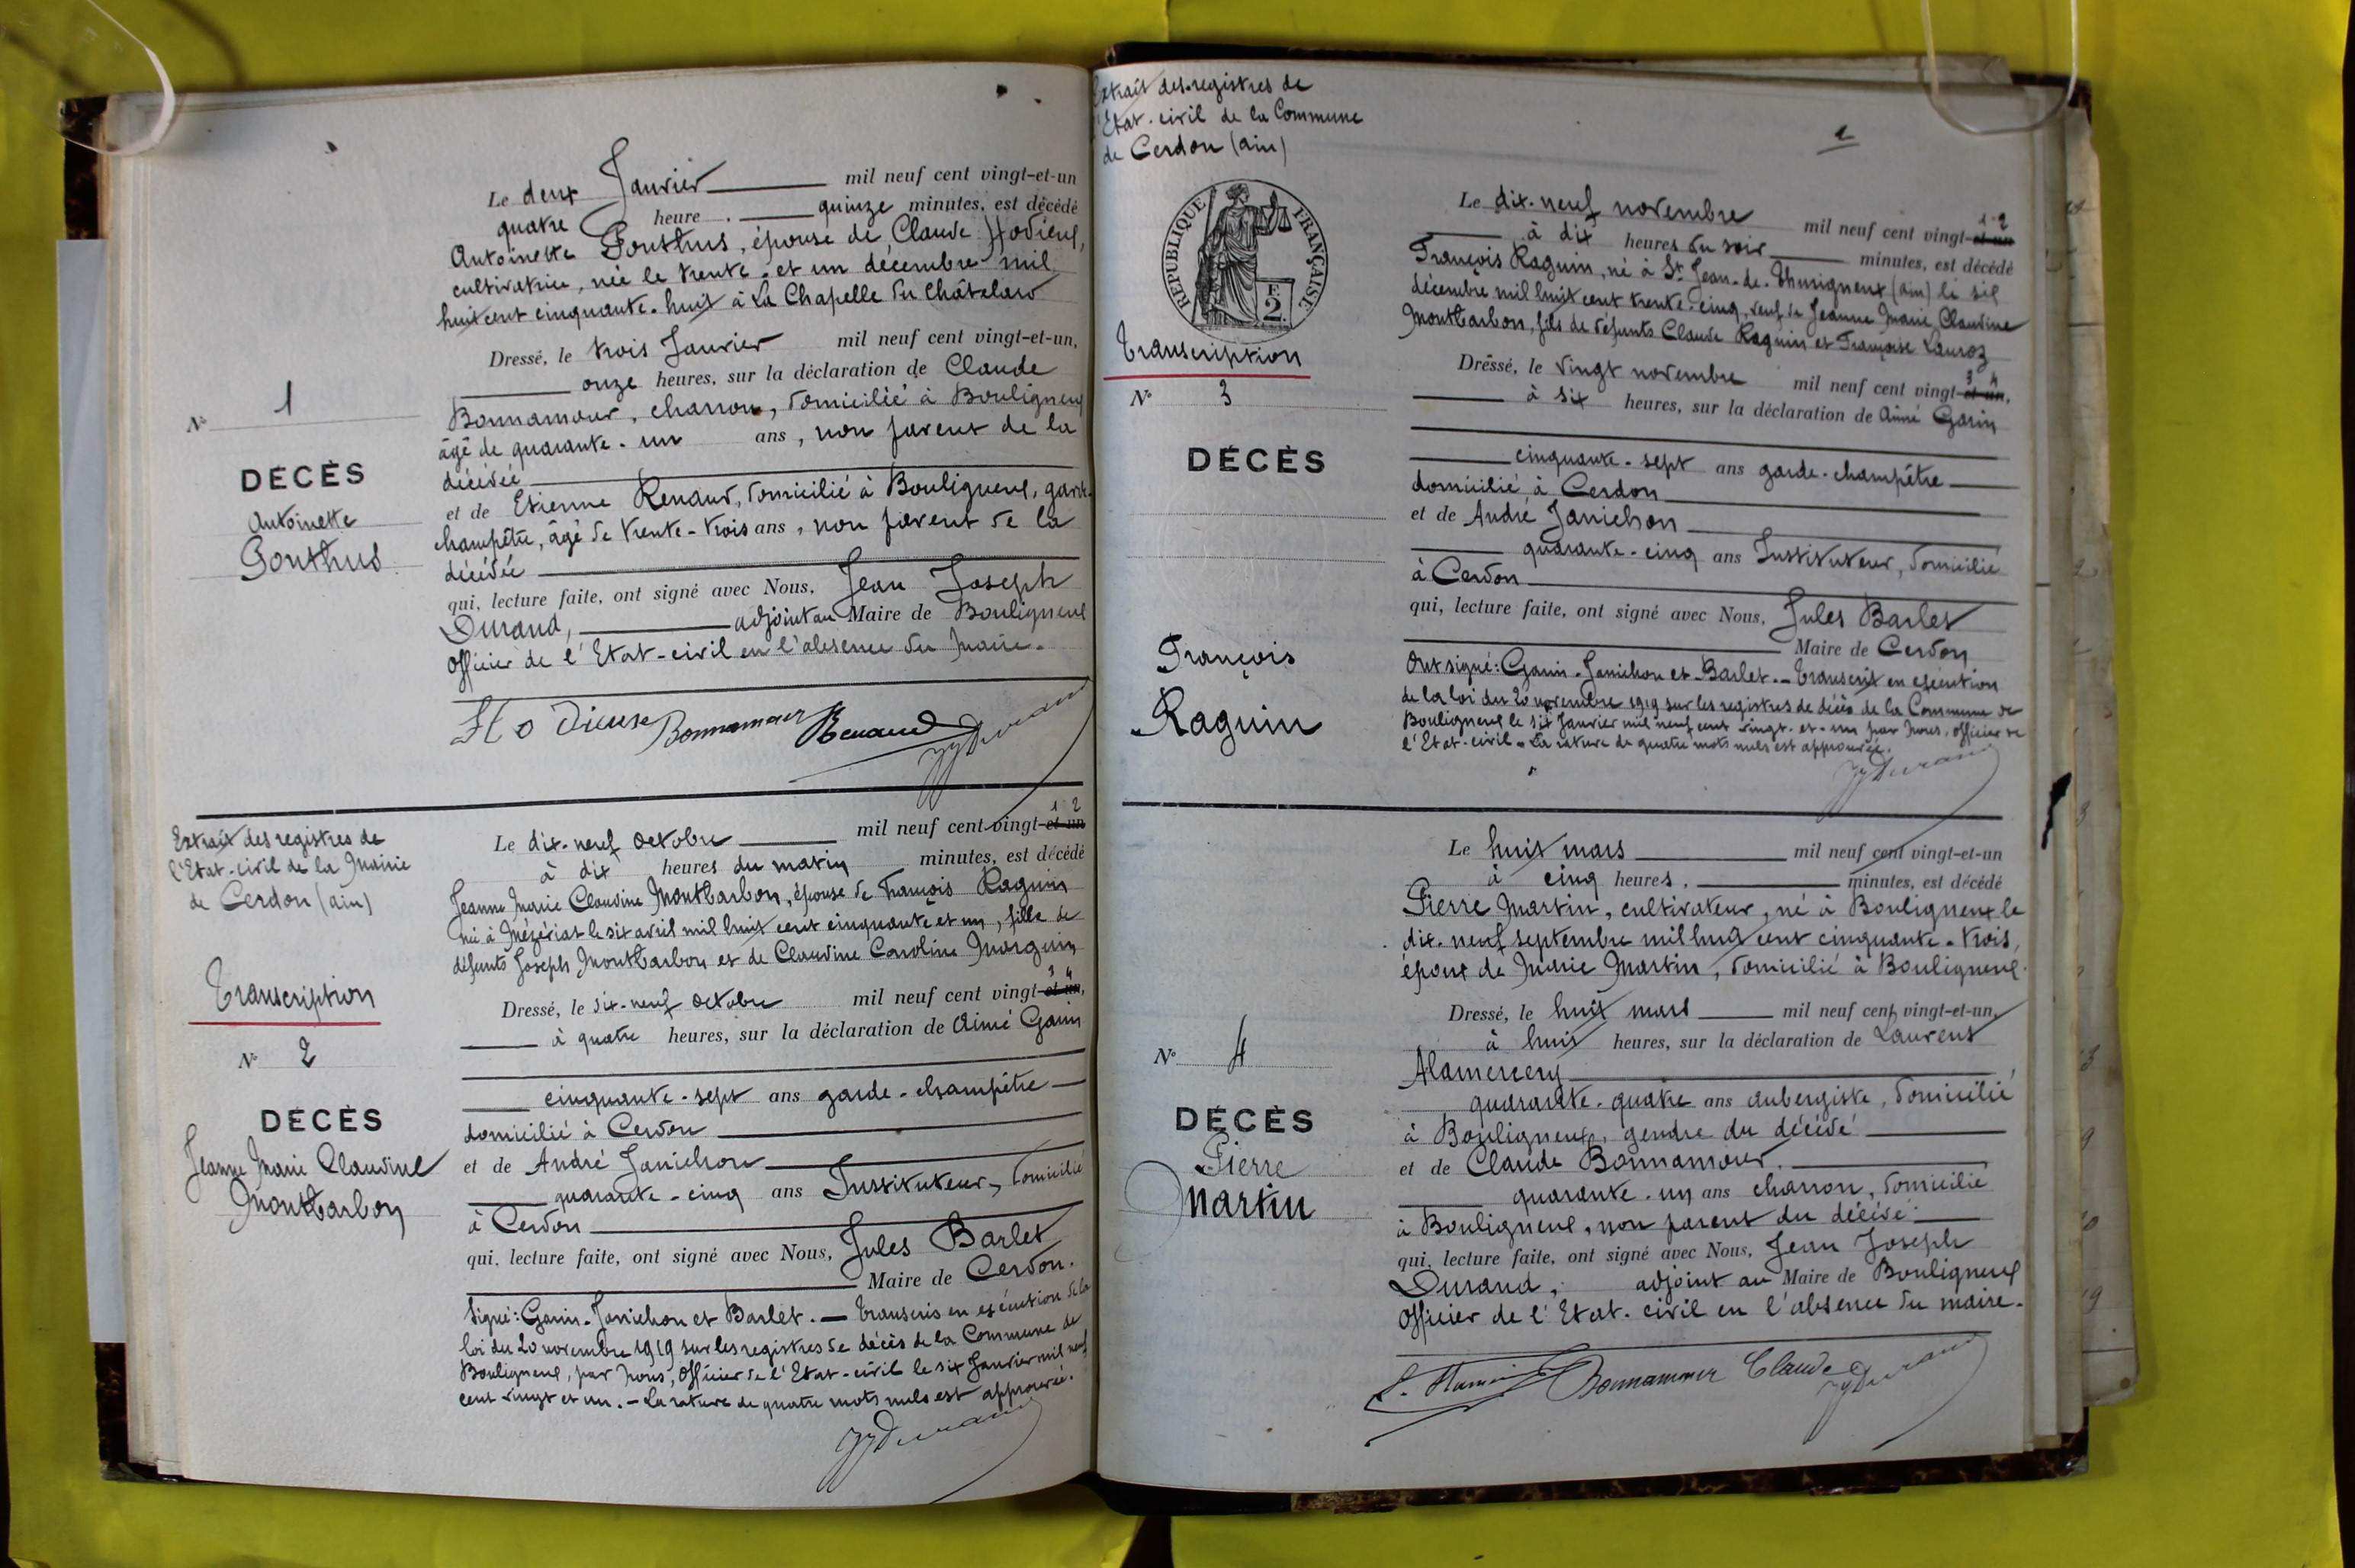 Le deux Janvier mil neuf cent vingt-et-un
quatre heure quinze minutes, est décédé
Antoinette Ponthus, épouse de Claude Hodieux,
cultivatrice, née le trente-et un décembre mil
huit cent cinquante-huit à La Chapelle du Châtelard
Dressé, le trois Janvier mil neuf cent vingt-et-un,
onze heures, sur la déclaration de Claude
Bonnamour, charron, domicilié à Bouligneux
âgé de quarante-un ans, non parent de la
décédée
et de Etienne Renaud, domicilié à Bouligneux, garde-
champêtre, âgé de trente-trois ans, non parent de la
décédée
qui, lecture faite, ont signé avec Nous, Jean Joseph
Durand, adjoint au Maire de Bouligneux
Officier de l'Etat-civil en l'absence du Maire.
Nº 1
DÉCÈS
Antoinette
Ponthus
Hodieux Bonnamour Renaud JJ Durand
Extrait des registres de
l'Etat-civil de la Mairie
de Cerdon (Ain)
Transcription
Nº 2
DÉCÈS
Jeanne Marie Claudine
Montbarbon
1 2
Le dix-neuf octobre mil neuf cent vingt-et-un
à dix heures du matin minutes, est décédé
Jeanne Marie Claudine Montbarbon, épouse de François Raguin
née à Mézériat le six avril mil huit cent cinquante et un, fille de
défunts Joseph Montbarbon et de Claudine Caroline Marguin
3 4
Dressé, le dix-neuf octobre mil neuf cent vingt-et-un,
à quatre heures, sur la déclaration de Aimé Garin
cinquante-sept ans garde-champêtre
domicilié à Cerdon
et de André Janichon
quarante-cinq ans Instituteur, domicilié
à Cerdon
qui, lecture faite, ont signé avec Nous, Jules Barlet
Maire de Cerdon.
Signé: Garin-Janichon et Barlet.— Transcris en exécution de la
loi du 20 novembre 1919 sur les registres de décès de la Commune de
Bouligneux, par Nous, Officier de l'Etat-civil le six Janvier mil neuf
cent vingt et un.- La rature de quatre mots nuls est approuvée.
JJ Durand
Extrait des registres de
l'Etat-civil de la Commune
de Cerdon (Ain)
RÉPUBLIQUE FRANÇAISE
F.
2
Transcription
Nº 3
DÉCÈS
François
Raguin
1
1 2
Le dix-neuf novembre mil neuf cent vingt-et-un
à dix heures du soir minutes, est décédé
François Raguin, né à St Jean-de-Thurigneux (Ain) le six
décembre mil huit cent trente-cinq, veuf de Jeanne Marie Claudine
Montbarbon, fils de défunts Claude Raguin et Françoise Lauroz
3 4
Dressé, le vingt novembre mil neuf cent vingt-et-un,
à six heures, sur la déclaration de Aimé Garin
cinquante-sept ans garde-champêtre
domicilié à Cerdon
et de André Janichon
quarante-cinq ans Instituteur, domicilié
à Cerdon
qui, lecture faite, ont signé avec Nous, Jules Barlet
Maire de Cerdon
Ont signé: Garin-Janichon et Barlet.- Transcrit en exécution
de la loi du 20 novembre 1919 sur les registres de décès de la Commune de
Bouligneux le six Janvier mil neuf cent vingt-et-un par Nous, Officier de
l'Etat-civil. La rature de quatre mots nuls est approuvée.
JJ Durand
Nº 4
DÉCÈS
Pierre
Martin
Le huit mars mil neuf cent vingt-et-un
à cinq heures. minutes, est décédé
Pierre Martin, cultivateur, né à Bouligneux le
dix-neuf septembre mil huit cent cinquante-trois,
époux de Marie Martin, domicilié à Bouligneux.
Dressé, le huit mars mil neuf cent vingt-et-un,
à huit heures, sur la déclaration de Laurent
Alamercery
quarante-quatre ans aubergiste, domicilié
à Bouligneux, gendre du décédé
et de Claude Bonnamour.
quarante-un ans charron, domicilié
à Bouligneux, non parent du décédé
qui, lecture faite, ont signé avec Nous, Jean Joseph
Durand, adjoint au Maire de Bouligneux
Officier de l'Etat-civil en l'absence du maire.
Bonnamour Claude JJ Durand